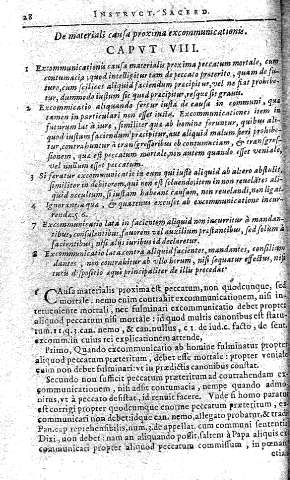 28 INSTRVCT. SACERD.
De materiali causa proxima excommunicationis.
CAPVT VIII.
1 Excommunicationis causa materialis proxima peccatum mortale, cum
contumacia: quod intelligitur tam de peccato præterito, quam de fu-
turo, cum scilicet aliquid faciendum præcipitur, vel ne fiat prohibe-
tur, dummodo iustum sit quod præcipitur, vel quæ sit grauis.
2 Excommunicatio aliquando fertur iusta de causa in communi, quæ
tamen in particulari non esset iusta. Excommunicationes item in
futurum latæ à iure, similiter quæ ab homine feruntur, quibus ali-
quod iustum faciendum præcipitur, aut aliquid malum fieri prohibe-
tur, contrahuntur à transgressoribus ob contumaciam, & transgres-
sionem, quæ est peccatum mortale, non autem quando esset veniale,
vel nullum esset peccatum.
3 Si feratur excommunicatio in eum qui iustè aliquid ab alero abstulit,
similiter in debitorem, qui non est soluendo, item in non reuelantes ali-
quod occultum, si iustam habeant causam, non reuelandi, non ligat.
4 Ignorantia quæ, & quatenus excuset ab excommunicatione incur-
renda: 5 6.
7 Excommunicatio lata in facientem aliquid non incurritur à mandan-
tibus, consulentibus, fauorem vel auxilium præstantibus, sed solum à
facientibus, nisi alijs iuribus id declaretur.
8 Excommunicatio lata contra aliquid facientes, mandantes, consilium
dantes, non contrahitur ab illis horum, nisi sequatur effectus, nisi
iuris dispositio aqui principaliter de illis procedat.
Causa materialis proxima est peccatum, non quodcunque, sed
mortale. nemo enim contrahit excommunicationem, nisi in-
terueniente mortali, nec fulminari excommunicatio debet propter
aliquod peccatum nisi mortale: idque multis canonibus est statu-
tum. 11. q. 3. can. nemo, & can. nullus, c 1. de iud. c. facto, de sent.
excomm. in cuius rei explicationem attende,
Primo, Quando excommunicatio ab homine fulminatur propter
aliquod peccatum præteritum, debet esse mortale: propter veniale
enim non debet fulminari: vt in prædictis canonibus constat.
Secundo non sufficit peccatum præteritum ad contrahendam ex-
communicationem, nisi adsit contumacia, nempe quando admo-
nitus, vt à peccato desistat, id renuit facere. Vnde si homo paratus
est corrigi propter quodcumque enorme peccatum præteritum, ex-
communicari non debet: idque can. nemo, allegato probatur, & tradit
Pan. cap. reprehensibilis, num. 3. de appellat. cum communi sententia
Dixi, non debet: nam an aliquando possit, saltem à Papa aliquis ex-
communicari propter aliquod peccatum commissum, in pœnam
etiam